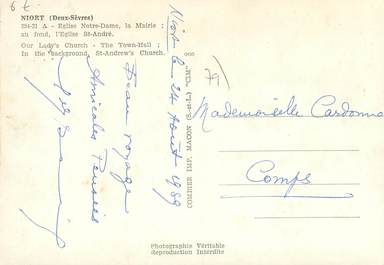 6 €
NIORT (Deux-Sèvres)
234-21 A - Eglise Notre-Dame, la Mairie ;
au fond, l'Eglise St-André.
Our Lady's Church - The Town-Hall ;
In the background, St-Andrew's Church. ooo
Niort le 24 Août 1959
Beau voyage
Amicales Pensées
COMBIER IMP. MACON (S.-et-L.) "CIM"
79
Mademoiselle Cardonne
Comps
Photographie Véritable
Reproduction Interdite